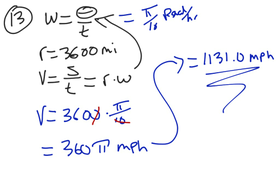 13 ω = θ/t = π/10 Rad/hr
r = 3600 mi
V = s/t = r·ω
V = 3600 · π/10
= 360π mph
= 1131.0 mph